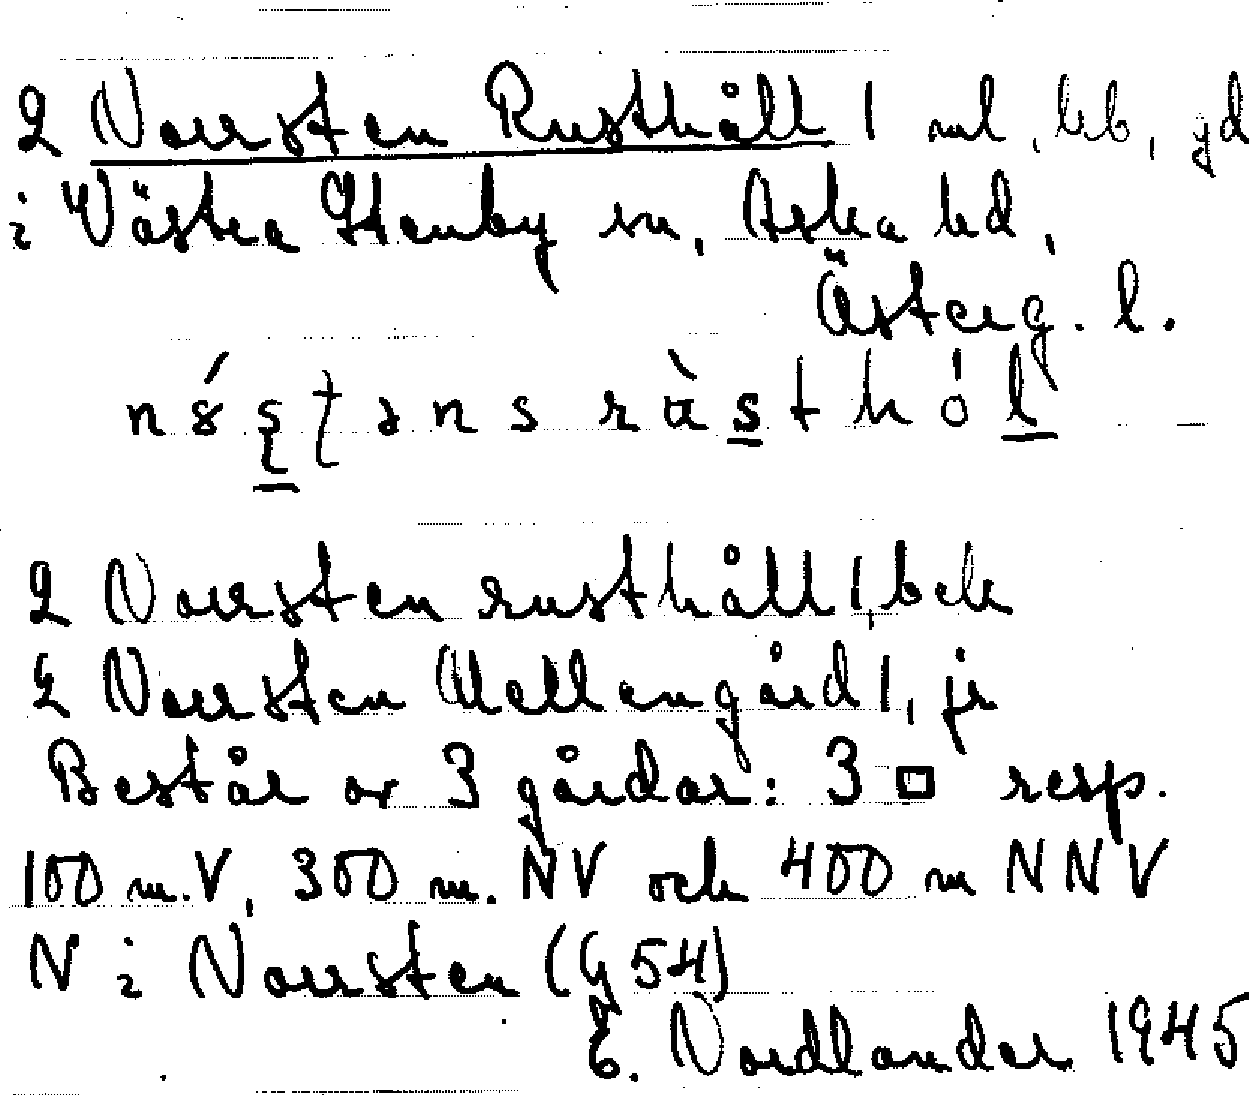 2 Norrsten Rusthåll 1 ml, hb, gd
i Västra Stenby sn, Aska hd,
Österg. l.
2 Norrsten rusthåll 1, bek
2 Norrsten Mellangård 1, jr
Består av 3 gårdar: 3 □ resp.
100 m. V, 300 m. NV och 400 m NNV
N i Norrsten (G54)
E. Nordlander 1945